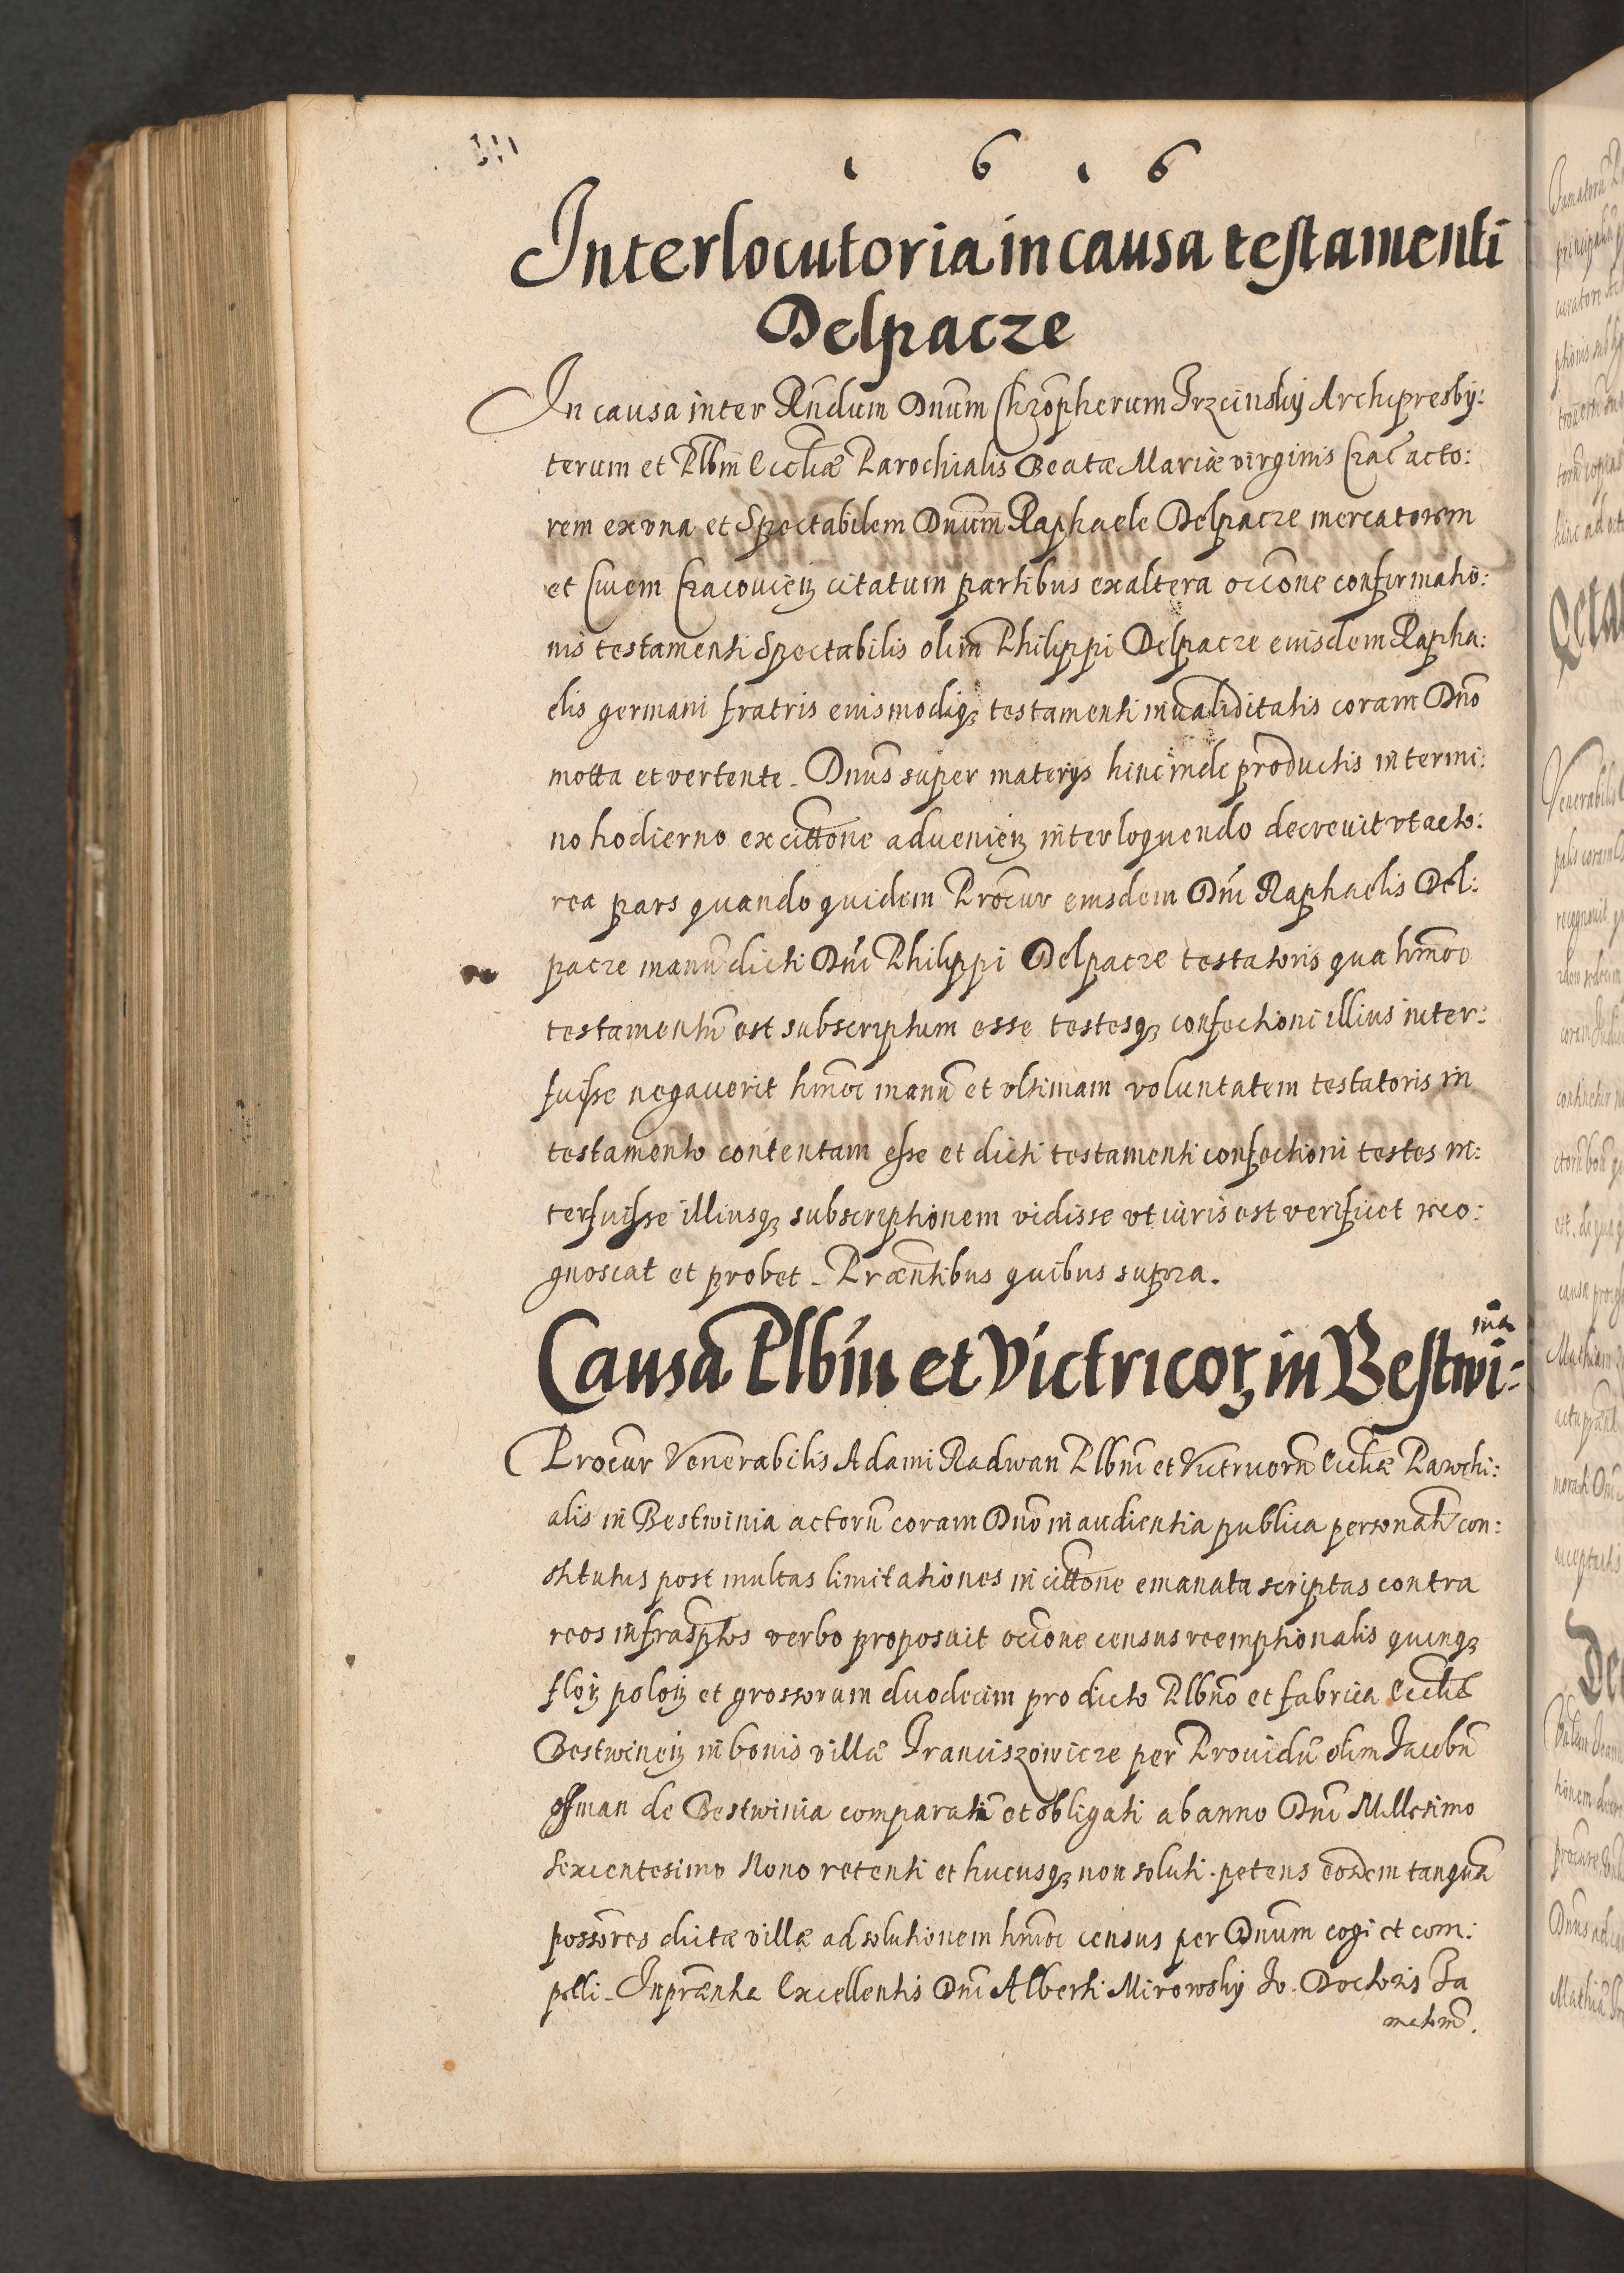 1 6 1 6
Interlocutoria in causa testamenti
Delpacze
In causa inter Rndum Dnum Chrōpherum Trzcinskij Archipresby:
terum et Plbm Eccliæ Parochialis Beatæ Mariæ virginis Crac acto:
rem ex vna et Spectabilem Dnum Raphaele Delpacze mercatorem
et Civem Cracovieñ citatum partibus ex altera occõne confirmatio:
nis testamenti Spectabilis olim Philippi Delpacze eiusdem Rapha:
elis germani fratris eiusmodiqȝ testamenti invaliditatis coram Dno
motta et vertente. Dnus super materijs hinc inde productis in termi:
no hodierno ex cittõne advenieñ interloquendo decrevit vt acto:
rea pars quando quidem Procur eiusdem Dni Raphaelis Del:
pacze manũ dicti Dni Philippi Delpacze testatoris qua hmõi
testamentũ est subscriptum esse testesqȝ confectioni illius inter:
fuisse negaverit hmõi manũ et vltimam voluntatem testatoris in
testamento contentam esse et dicti testamenti confectioni testes in:
terfuisse illiusqȝ subscriptionem vidisse vt iuris est verificet reco:
gnoscat et probet. Præntibus quibus supra.
Causa Plbni et Victricoꝝ in Bestwi:
nia
Procur Venerabilis Adami Radwan Plbni et Victricorũ Eccliæ Parochi:
alis in Bestwinia actorũ coram Dno in audientia publica personalr con:
stitutus post multas limitationes in cittõne emanata scriptas contra
reos infrascptos verbo proposuit occõne census reemptionalis quinqȝ
floꝝ poloꝝ et grossorum duodecim pro dicto Plbno et fabrica Eccliæ
Bestwineñ in bonis villæ Franciszowicze per Providũ olim Jacobũ
de Bestwinia comparati et obligati ab anno Dni Millesimo
sexcentesimo Nono retenti et hucusqȝ non soluti. petens eosdem tanquã
possores dictæ villæ ad solutionem hmõi census per Dnum cogi et com:
pelli. In prænta Excellentis Dni Alberti Mirowskij Iv. Doctoris Fa